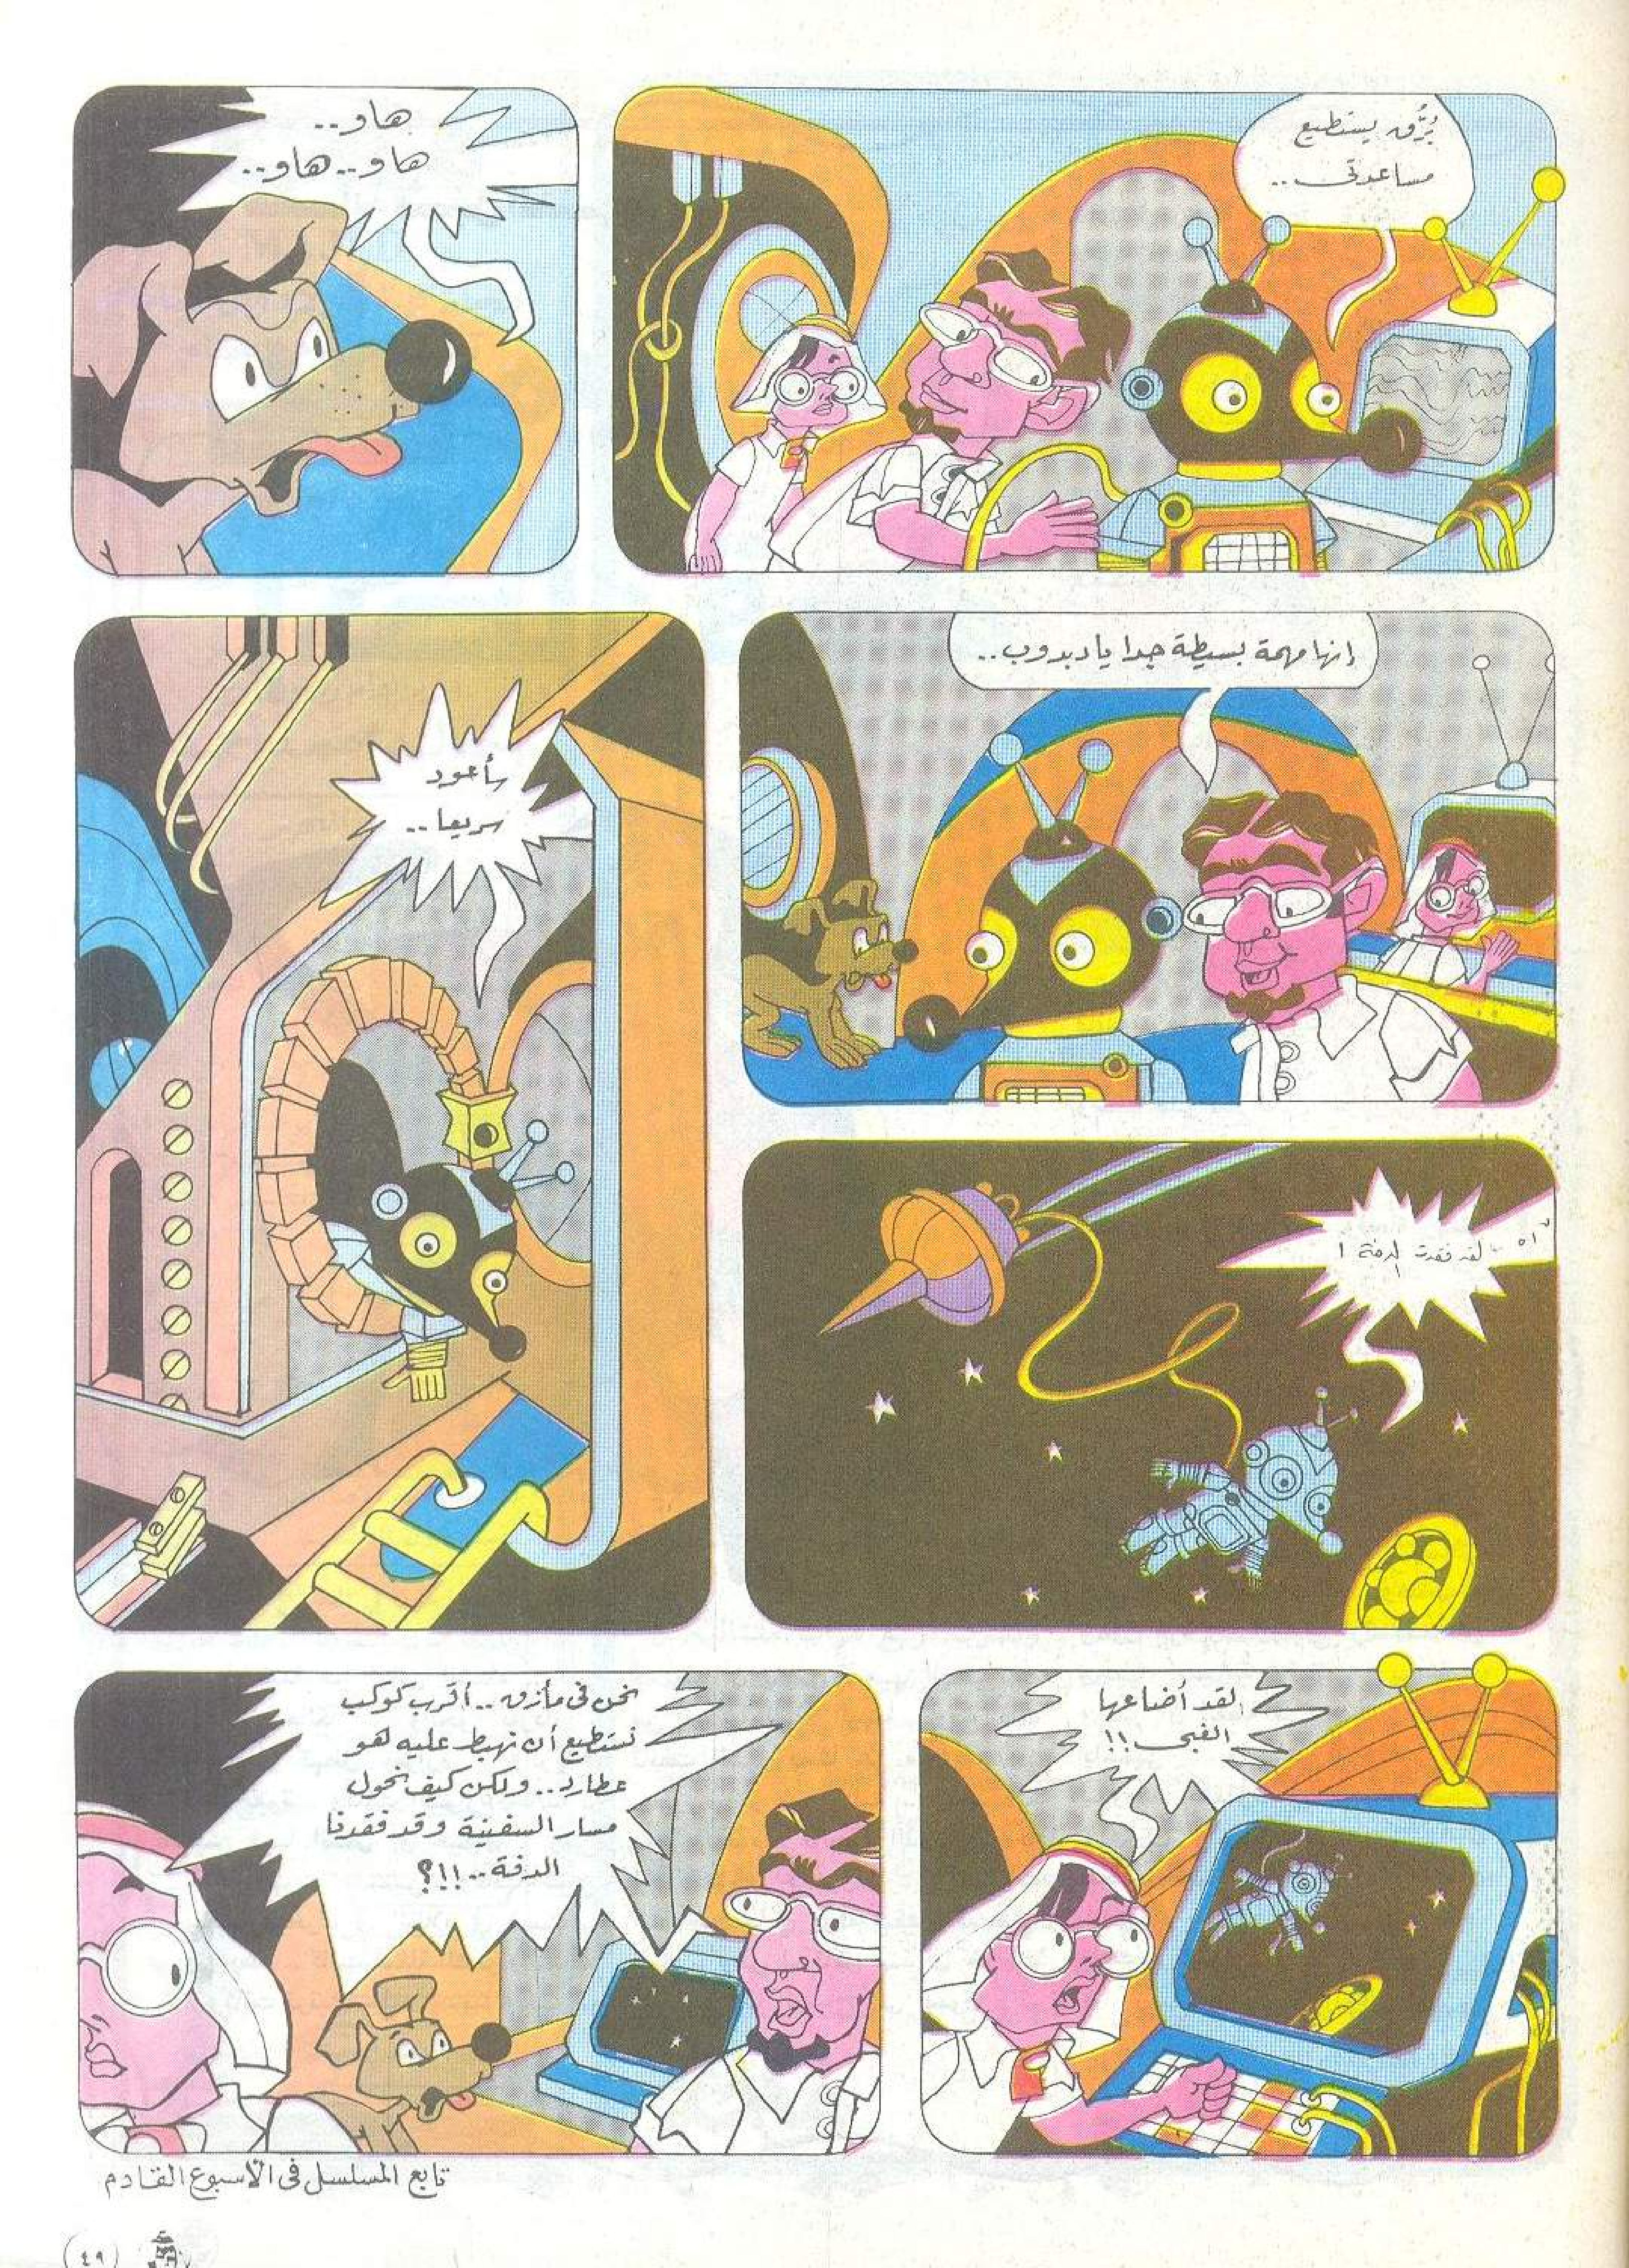 بُرَّق يستطيع
مساعدتى..
هاو..
هاو..هاو..
إنها مهمة بسيطة جدا يا دبدوب..
سأعود
سريعا..
آه .. لقد فقدت الدفة !
لقد أضاعها
الغبى !!
نحن فى مأزق .. أقرب كوكب
نستطيع أن نهبط عليه هو
عطارد.. ولكن كيف نحول
مسار السفينة وقد فقدنا
الدفة..!!؟
تابع المسلسل فى الأسبوع القادم
٤٩